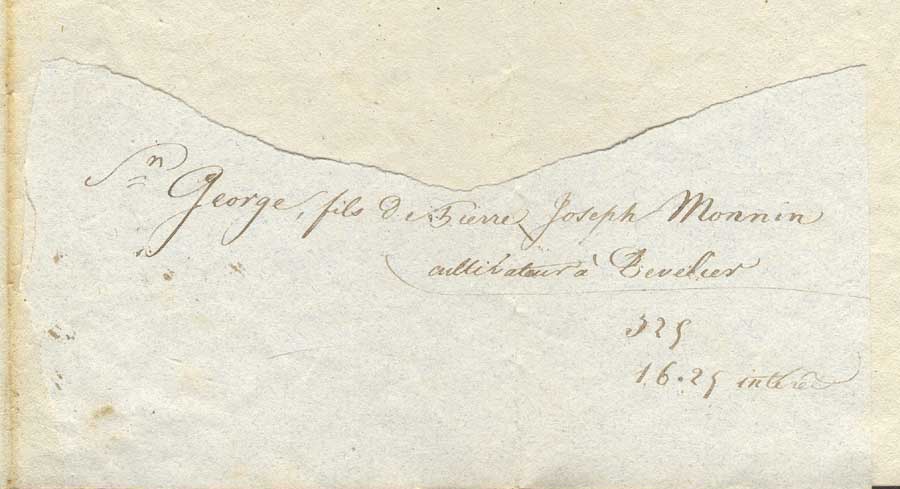 Sn George, fils de Pierre Joseph Monnin
cultivateur à Develier
325
16.25 intérêt